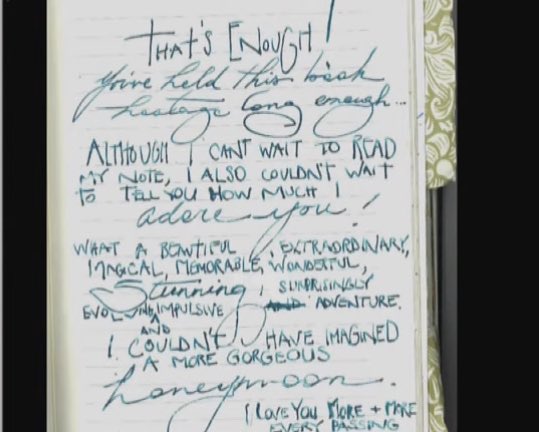 THAT'S ENOUGH!
You've held this book
hostage long enough...
ALTHOUGH I CAN'T WAIT TO READ
MY NOTE, I ALSO COULDN'T WAIT
TO TELL YOU HOW MUCH I
adore you!
WHAT A BEAUTIFUL, EXTRAORDINARY,
MAGICAL, MEMORABLE, WONDERFUL,
Stunning, SURPRISINGLY
EVOLVING, IMPULSIVE AND ADVENTURE.
AND
I COULDN'T HAVE IMAGINED
A MORE GORGEOUS
honeymoon.
I LOVE YOU MORE + MORE
EVERY PASSING